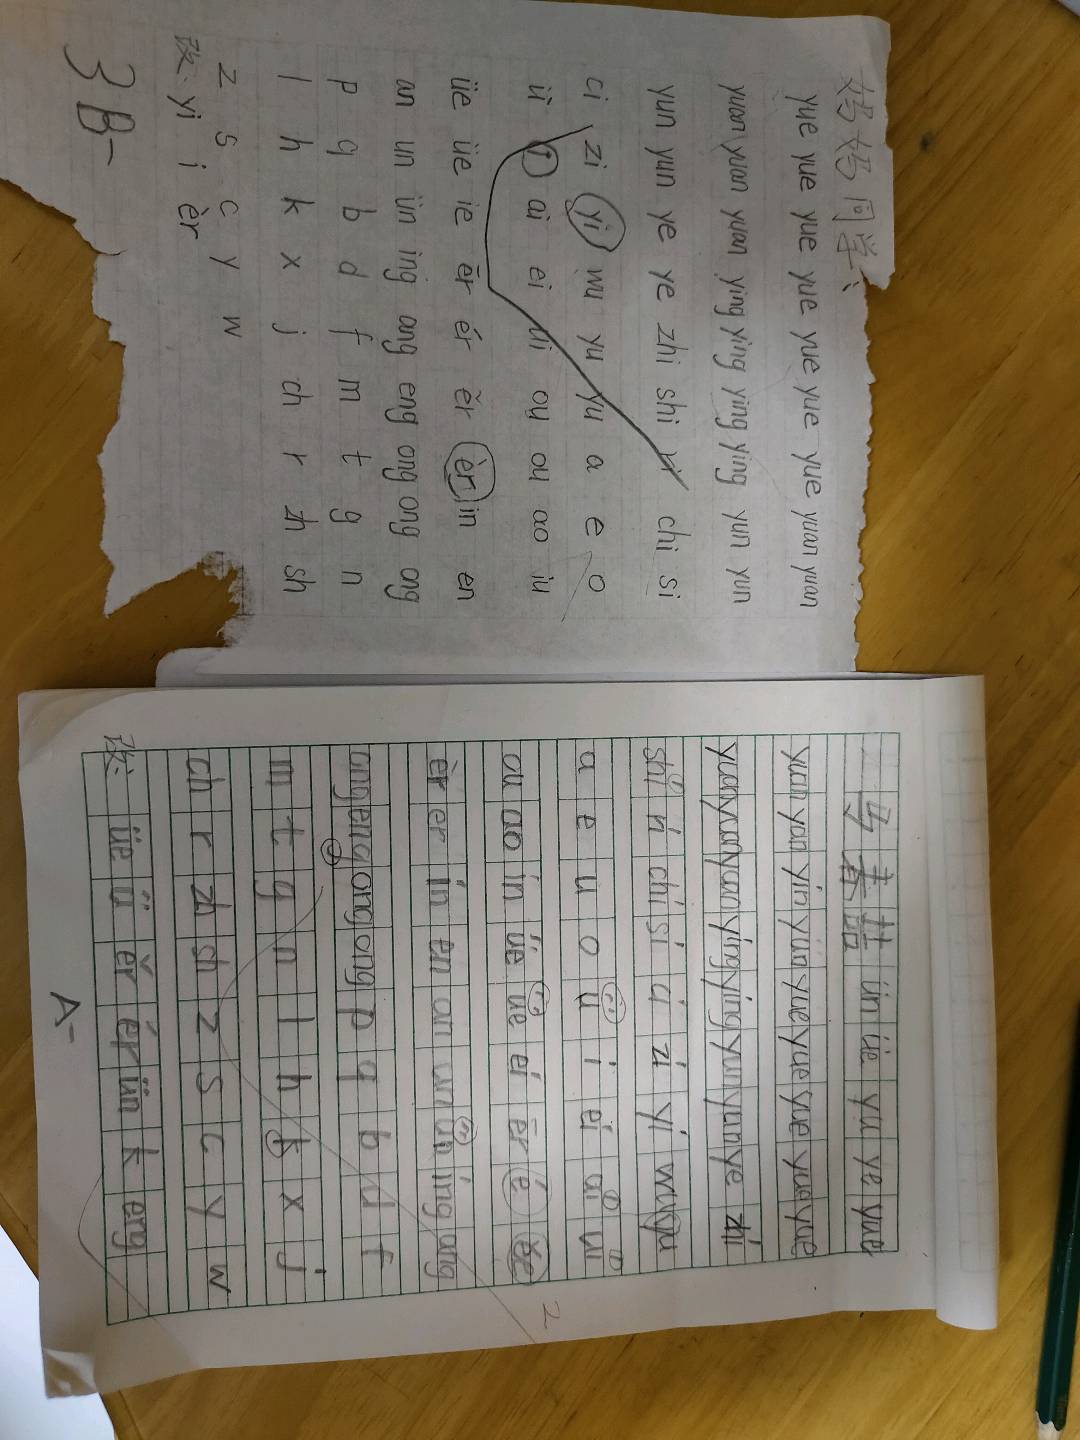 妈妈同学：
yue yue yue yue yue yue yue yuan yuan
yuan yuan yuan ying ying ying ying yun yun
yun yun ye ye zhi shi ri chi si
ci zi yi wu yu yu a e o
ü i ai ei ui ou ou ao iu
üe üe ie ēr ér ěr èr in en
an un ün ing ang eng ong ong ang
p q b d f m t g n
l h k x j ch r zh sh
z s c y w
改: yi i èr
3 B-
ün üe yu ye yue
yuan yan yin yun yue yue yue yue yue
yuan yuan yuan ying ying yun yun ye zhi
shi ri chi si ci zi yi wu yu
a e u o ü i ei ai ui
ou ao in üe üe ei ēr
èr er in en an un ün ing ang
ang eng ong ong p q b d f
m t g n l h k x j
ch r zh sh z s c y w
改: üe ü ěr ér ün k eng
2
A-